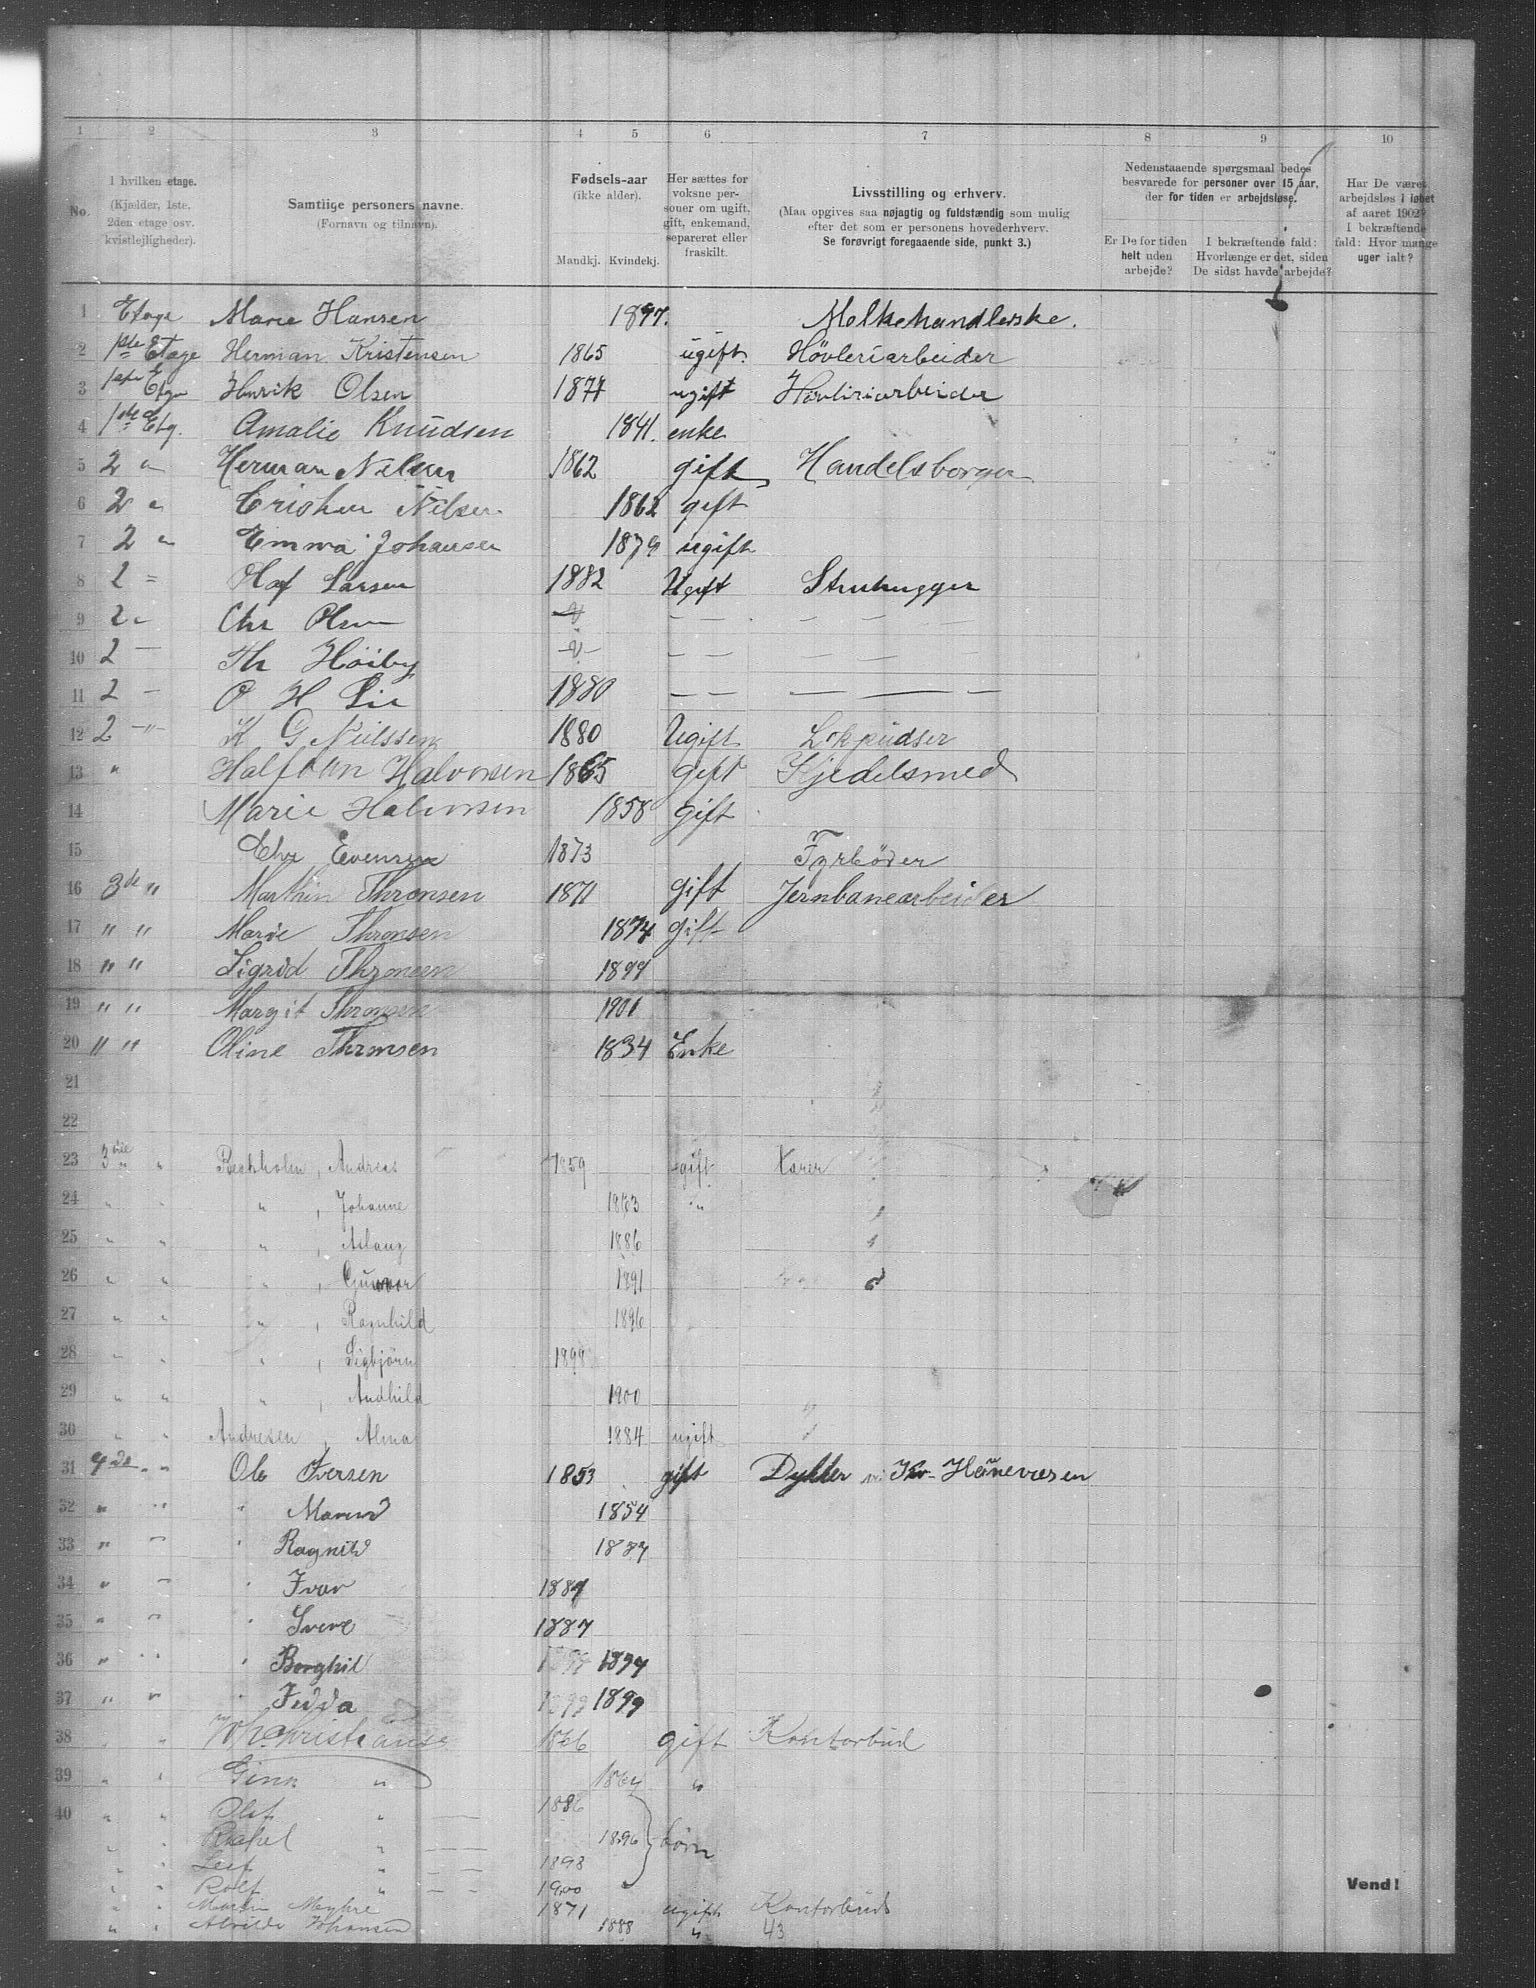 1 2 3 4 5 6 7 8 9 10
No.
I hvilken etage.
(Kjælder, 1ste.
2den etage osv.
kvistlejligheder).
Samtlige personers navne.
(Fornavn og tilnavn).
Fødsels-aar
(ikke alder).
Mandkj. Kvindekj.
Her sættes for
voksne per-
soner om ugift,
gift, enkemand,
separeret eller
fraskilt.
Livsstilling og erhverv.
(Maa opgives saa nøjagtig og fuldstændig som mulig
efter det som er personens hovederhverv.
Se forøvrigt foregaaende side, punkt 3.)
Nedenstaaende spørgsmaal bedes
besvarede for personer over 15 aar,
der for tiden er arbejdsløse.
Er De for tiden
helt uden
arbejde?
I bekræftende fald:
Hvorlænge er det, siden
De sidst havde arbejde?
Har De været
arbejdsløs i løbet
af aaret 1902?
I bekræftende
fald: Hvor mange
uger ialt?
1 Etage Marie Hansen Melkehandlerske.
2 1ste Etage Herman Kristensen 1865 ugift. Høvleriarbeider
3 1ste Etge Henrik Olsen ugift Høvleriarbeider
4 1ste Etg. Amalie Knudsen 1841. enke
5 2 " Herman Nilsen 1862 gift Handelsborger
6 2 " Nilsen 1862 gift
7 2 " Emma Johansen 1879 ugift
8 2 = Olaf Larsen 1882 Ugift Stenhugger
9 2 " Chr Olsen — — — —
10 2 — Th Høiby — — — —
11 2 — O H Lie 1880 — — — — —
12 2 —"— K G Nielssen 1880 Ugift Lokpudser
13 " Halfdan Halvorsen 1865 gift Kjedelsmed
14 Marie Halvorsen 1858 gift
15 Chr Evensen 1873 Fyrbøder
16 3de " Marthin Thronsen 1871 gift Jernbanearbeider
17 " " Marie Thronsen 1874 gift
18 " " Sigrid Thronsen 1899
19 " " Margit Thronsen 1901
20 " " Oline Thronsen 1834 Enke
21
22
23 3die " " Beckholm, Andreas 1859 gift
24 " " " , Johanne 1863 "
25 " " " , Aslaug 1886
26 " " " , Gunvor 1891
27 " " " , Ragnhild 1896
28 " " " , Sigbjörn 1898
29 " " " , Audhild 1900
30 " " Andresen, Alma 1884 ugift
31 4de " " Ole Iversen 1853 gift Dykker Havnevæsen
32 " " " 1854
33 " " " Ragnild
34 " " " Ivar
35 " " " Sverre 1887
36 " " " Borghil 1894
37 " " " Jedda 1899 1899
38 " " Joh. Christianse 1866 gift Kontorbud
39 " " Gina " "
40 " " Olaf " 1886
" " Rakel " 1896 børn
" " Leif " 1898
" " Rolf " 1900
" " Martin Myhre 1871 ugift Kontorbud
" " Alvilde Johansen 1888 " 43
Vend!